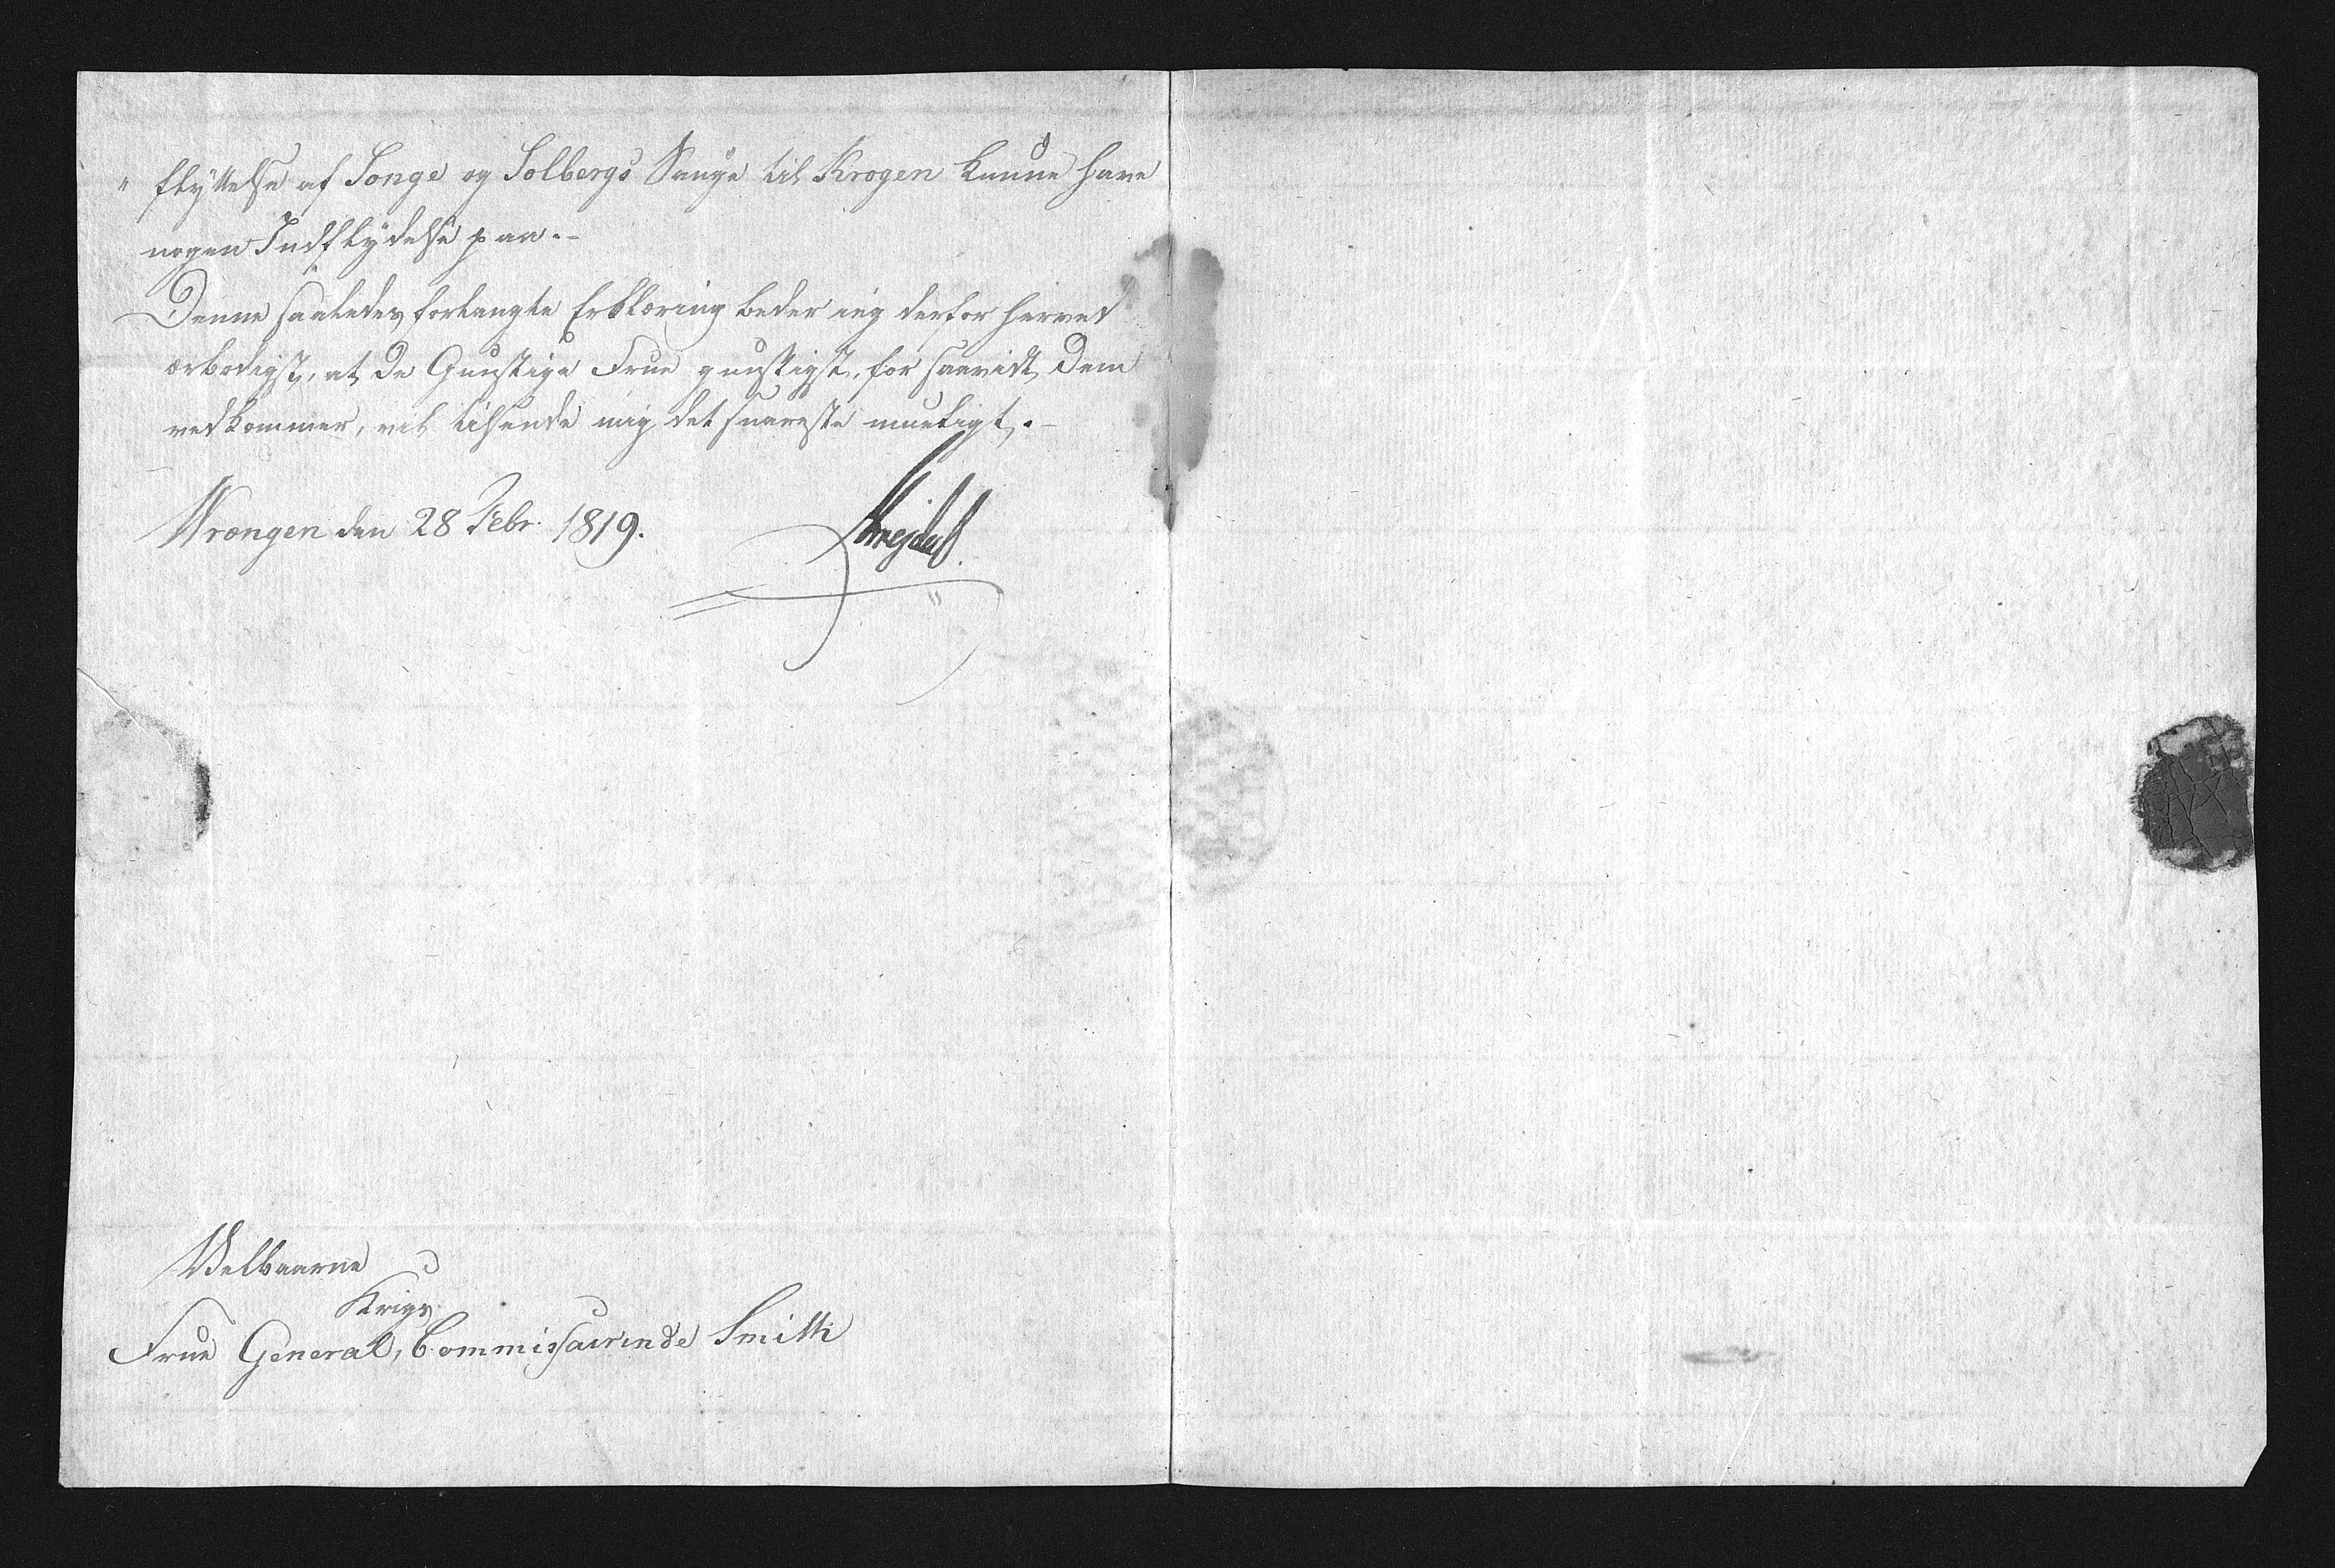 " flyttelse af Songe og Solbergs Sauge til Krogen kunne have
nogen Indflydelse paa.-
Denne saaledes forlangte Erklæring beder ieg derfor herved
ærbødigst, at De Gunstige Frue gunstigst, for saavidt Dem
vedkommer, vil tilsende mig det snareste mueligt.-
Wrængen den 28 Febr. 1819.
Velbaarne
Krigs
Frue General, Commissairinde Smith